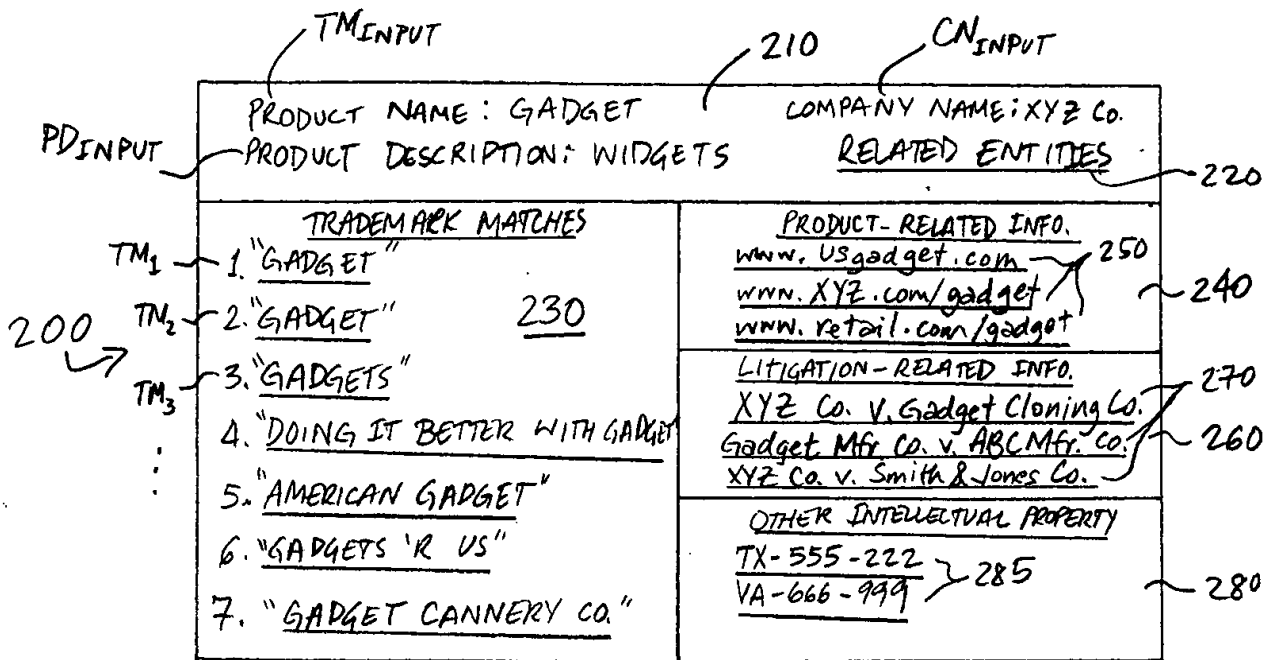 TM INPUT
210
CN INPUT
PRODUCT NAME: GADGET
COMPANY NAME: XYZ Co.
PD INPUT
PRODUCT DESCRIPTION: WIDGETS
RELATED ENTITIES
220
TRADEMARK MATCHES
TM1
1. "GADGET"
200
TM2
2. "GADGET"
230
TM3
3. "GADGETS"
4. "DOING IT BETTER WITH GADGET
5. "AMERICAN GADGET"
6. "GADGETS 'R US"
7. "GADGET CANNERY CO."
PRODUCT-RELATED INFO.
www.usgadget.com
250
www.XYZ.com/gadget
240
www.retail.com/gadget
LITIGATION-RELATED INFO.
270
XYZ Co. v. Gadget Cloning Co.
Gadget Mfr. Co. v. ABC Mfr. Co.
260
XYZ Co. v. Smith & Jones Co.
OTHER INTELLECTUAL PROPERTY
TX-555-222
285
VA-666-999
280